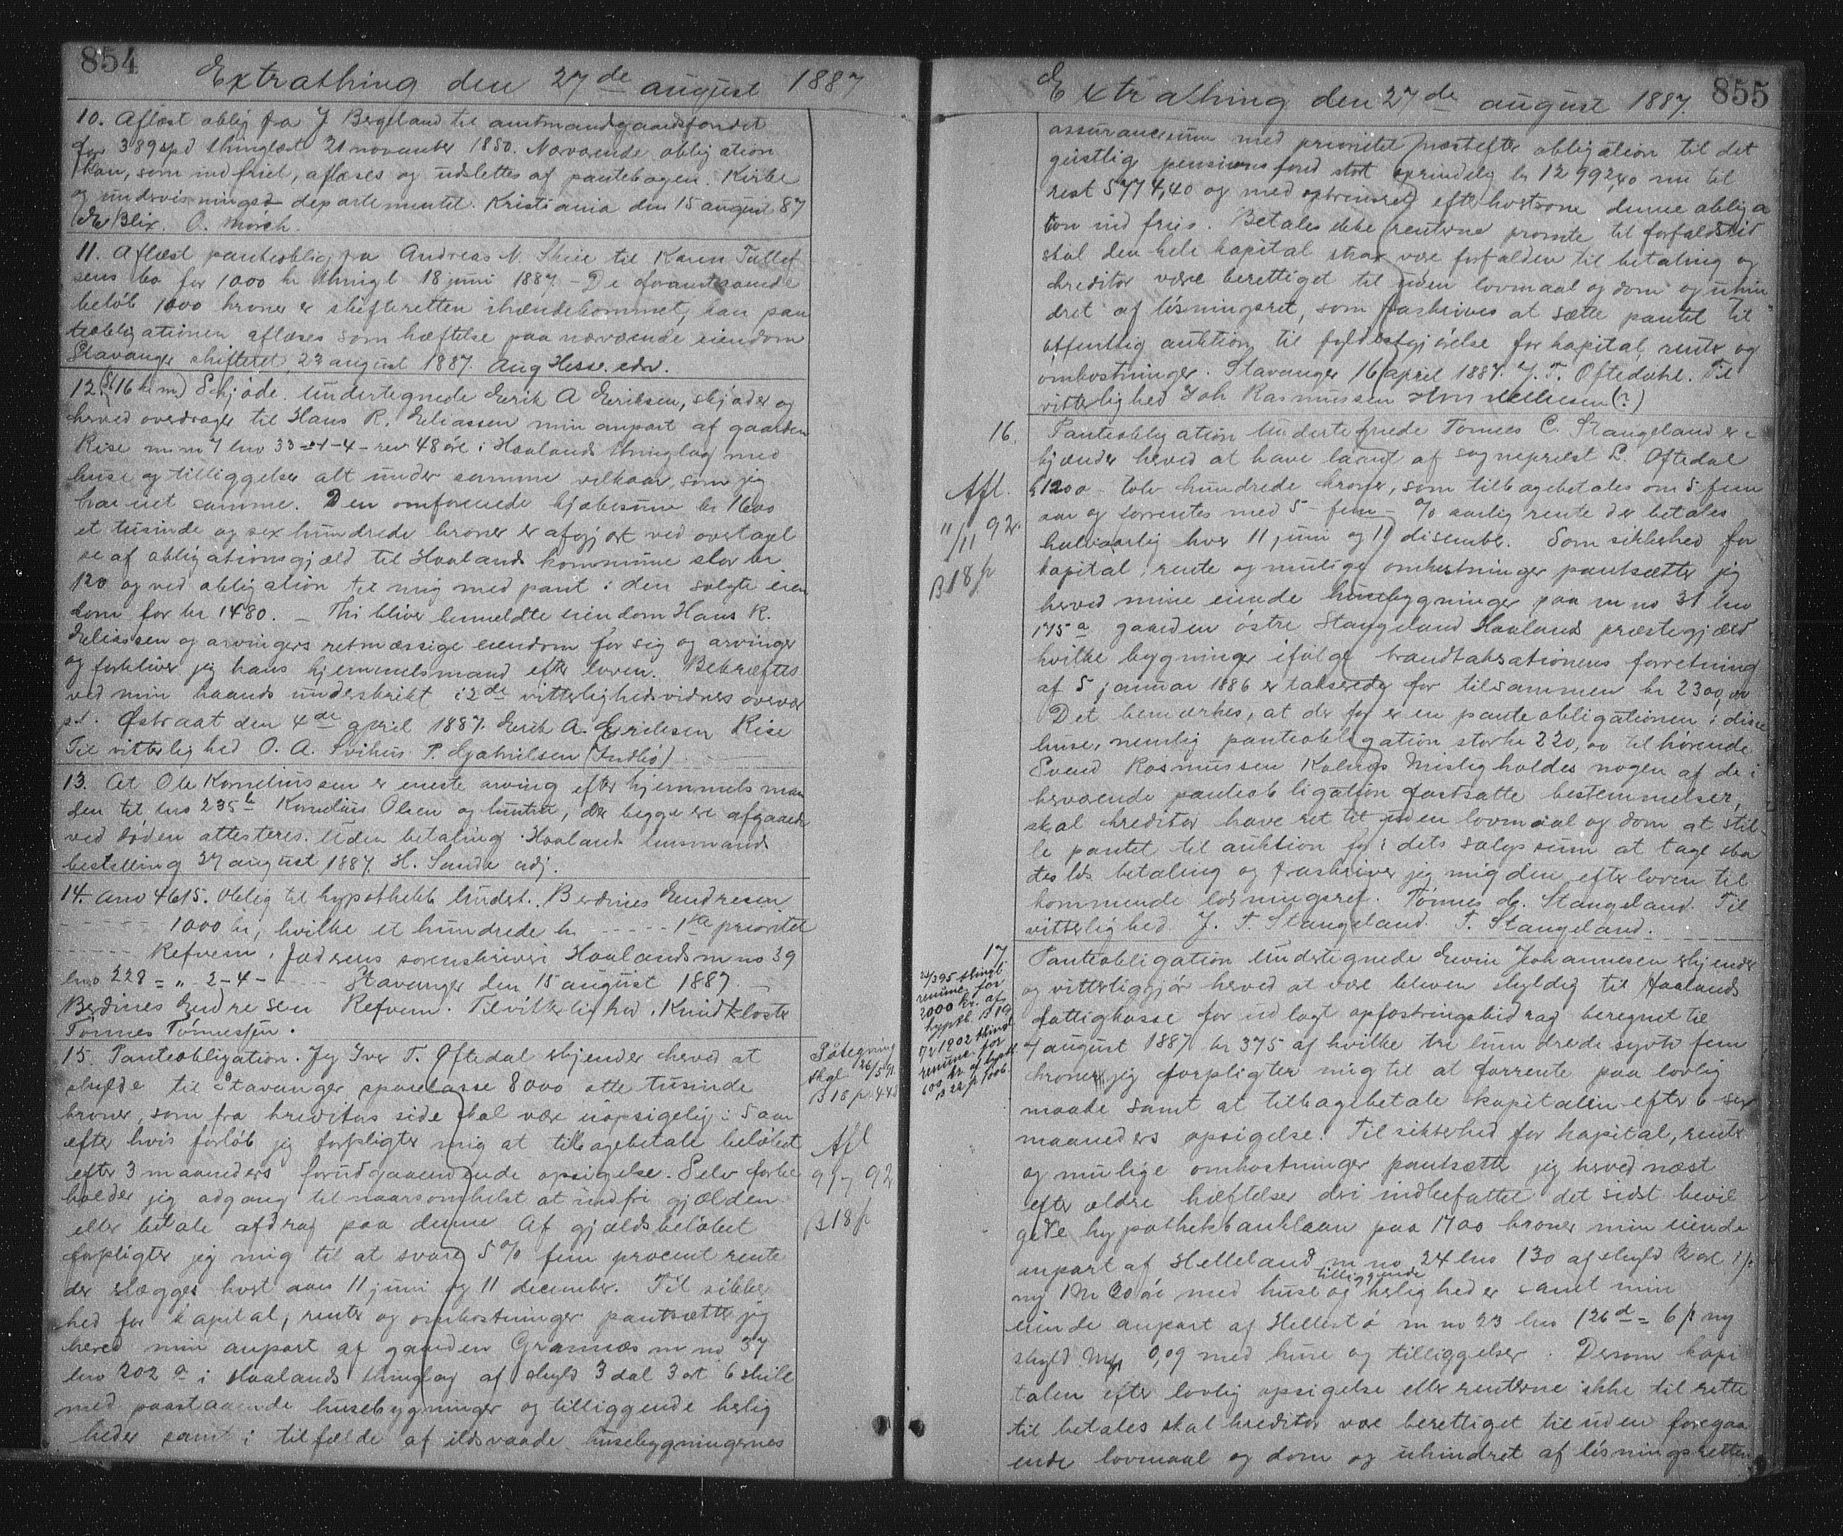 854
Extrathing den 27de august 1887
10. Aflæst oblig fra J Bergeland til amtmandgaardsfondet
for 389 spd thinglæst 21 november 1850. Nærværende obligation
kan, som indfriet, aflæses og udslettes af pantebogen. Kirke
og undervisnings departementet. Kristiania den 15 august 87
Blix. O. Mörch.
11. Aflæst panteoblig fra Andreas N. Skeie til Karen Tallef
sens bo for 1000 kr thingl 18 juni 1887. - De foranstaaende
beløb 1000 kroner er skifteretten ihændekommet, kan pan
teobligationen aflæses som hæftelse paa nærværende eiendom
Stavanger skifteret, 22 august 1887. Aug Hesse. edv.
12. (St. 16 kr m) Skjøde. Undertegnede Eerik A Eeriksen, skjøder og
herved overdrager til Hans R. Eeliassen min anpart af gaarden
Rise m no 7 lno 33 = 1-4- rev 48 öre i Haalands thinglag med
huse og tilliggelser alt under samme vilkaar, som jeg
har eiet samme. Den omforenede kjøbesum kr 1600
et tusinde og sex hundrede kroner er afgjort ved overtagel
se af obligationsgjæld til Haalands kommune stor kr
120 og ved obligation til mig med pant i den solgte eien
dom for kr 1480. - Thi bliver bemeldte eiendom Hans R.
Eeliassen og arvingers retmæssige eiendom for sig og arvinger
og forbliver jeg hans hjemmelsmand efter loven. Bekræftes
ved min haands underskrift i 2de vitterlighedsvidners overvær
et. Østraat den 4de april 1887. Eerik A. Eeriksen Rise
Til vitterlighed O. A. Svihus P. Gabrielsen (Indbö)
13. At Ole Korneliussen er eneste arving efter hjemmelsman
den til lno 235b Kornelius Olsen og hustru, der begge ere afgaaede
ved døden attesteres. Uden betaling. Haalands lensmands
bestilling 27 august 1887. H. Sande adj.
14. Ano 4615. Oblig til hypothekb Undert. Berdines Eendresen
1000 kr, hvilke et hundrede kr 1ste prioritet
Refvem i Jæderens sorenskriveri Haalands m no 39
lno 228 = " 2-4- Stavanger den 15 august 1887.
Berdines Eendresen Refvem. Til vitterlighed. Knud Kloster
Tönnes Tönnesen.
15. Panteobligation. Jeg Iver T. Oftedal skjender herved at
skylde til Stavanger sparekasse 8000 otte tusinde
kroner, som fra kreditors side skal være uopsigelig i 5 aar
efter hvis forløb jeg forpligter mig at tilbagebetale beløbet
efter 3 maaneders forudgaaendende opsigelse. Selv forbe
holder jeg adgang til naarsomhelst at indfri gjælden
eller betale afdrag paa denne Af gjældsbeløbet
forpligter jeg mig til at svare 5% fem procent rente
der elægges hvert aars 11 juni og 11 december. Til sikker
hed for kapital, renter og omkostninger pantsætter jeg
herved min anpart af gaarden Grannæs m no 37
lno 202a i Haalands thinglag af skyld 3 dal 3 ort 6 skill
med paastaaende husebygninger og tilliggende herlig
heder samt i tilfælde af ildsvaade husebygningernes
Paategning
thgl 26/5 91.
B 18 p 448
Afl
9/7 92
B 18 p
Extrathing den 27de august 1887.
855
assurancesum med prioritet næstefter obligation til det
geistlige pensionsfond stort oprindelig kr 12992,40 nu til
rest 5774,40 og med opträdsret efterhvert som denne obliga
tion indfries. Betales ikke renterne promte til forfaldstid
skal den hele kapital strax være forfalden til betaling og
kreditor være berettiget til uden lovmaal og dom og uhin
dret af løsningsret, som fraskrives at sætte pantet til
offentlig auktion til fyldestgjørelse for kapital, renter og
omkostninger. Stavanger 16 april 1887. J. T. Oftedahl. Til
vitterlighed Joh Rasmussen (?)
16. Panteobligation Undertegnede Tönnes C. Stangeland er
kjænder herved at have laant af sogneprest L. Oftedal
kr 1200 - tolv hundrede kroner, som tilbagebetales om 5 fem
aar og forrentes med 5 - fem - % aarlig rente der betales
halvaarlig hver 11 juni og 11 disember. Som sikkerhed for
kapital, rente og mulige omkostninger pantsætter jeg
herved mine eiende husebygninger paa m no 31 lno
175a gaarden østre Stangeland Haalands præstegjæld
hvilke bygninger ifølge brandtaksationens forretning
af 5 januar 1886 er takserede for tilsammen kr 2300,00
Det bemærkes, at der før er en panteobligationen i disse
huse, nemlig panteobligation stor kr 220,00 tilhørende
Svend Rasmussen Kolnes Misligholdes nogen af de i
nærværende panteobligation fastsatte bestemmelser,
skal kreditor have ret til uden lovmaal og dom at stil-
le pantet til auktion for i dets salgssum at tage ska
desløs betaling og fraskriver jeg mig den efter loven til
kommende løsningsret. Tönnes C. Stangeland. Til
vitterlighed. J. T. Stangeland. T. Stangeland.
Afl.
11/11 92.
B 18 p
17 Panteobligation Undertegnede Eevin Johannesen skjender
og vitterliggjör herved at være bleven skyldig til Haalands
fattigkasse for udlagt opfostringsbidrag beregnet til
7 august 1887 kr 375 af hvilke tre hundrede sytti fem
kroner jeg forpligter mig til at forrente paa lovlig
maade samt at tilbagebetale kapitalen efter 6 sex
maaneders opsigelse. Til sikkerhed for kapital, renter
og mulige omkostninger pantsætter jeg herved næst
efter ældre hæftelser deri indbefattet det sidst bevil
gede hypothekbanklaan paa 1700 kroner min eiende
anpart af Helleland m no 24 lno 130 af skyld 2 ort 1 ß.
ny 1 M 20 öre med huse og tilliggende herligheder samt min
eiende anpart af Hellestö m no 23 lno 126d = 6 ß ny
skyld Mrk 0,09 med huse og tilliggelser. Dersom kapi
talen efter lovlig opsigelse eller renterne ikke til rette
tid betales skal kreditor være berettiget til uden foregaa
ende lovmaal og dom og uhindret af løsningsretten
24/3 95 thingl
renunc. for
2000 kr. af
hyptb. B 19
7/2 1902 thingl
renunc. for
600 kr. af hyptb
B 22 p. 1006.